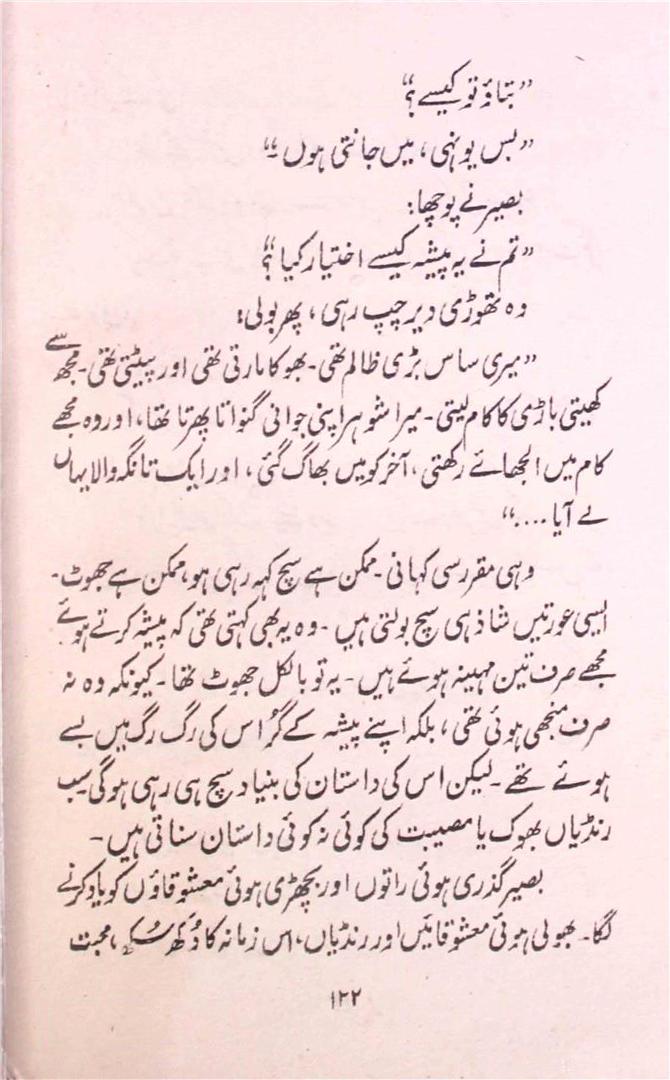 "بتاؤ تو کیسے؟"
"بس یونہی، میں جانتی ہوں۔"
بصیر نے پوچھا:
"تم نے یہ پیشہ کیسے اختیار کیا؟"
وہ تھوڑی دیر چپ رہی، پھر بولی:
"میری ساس بڑی ظالم تھی۔ بھوکا مارتی تھی اور پیٹتی تھی۔ مجھ سے
کھیتی باڑی کا کام لیتی۔ میرا شوہر اپنی جوانی گنواتا پھرتا تھا، اور وہ مجھے
کام میں الجھائے رکھتی، آخر کو میں بھاگ گئی، اور ایک تانگہ والا یہاں
لے آیا ...."
وہی مقرر سی کہانی۔ ممکن ہے سچ کہہ رہی ہو، ممکن ہے جھوٹ۔
ایسی عورتیں شاذ ہی سچ بولتی ہیں۔ وہ یہ بھی کہتی تھی کہ پیشہ کرتے ہوئے
مجھے صرف تین مہینہ ہوئے ہیں۔ یہ تو بالکل جھوٹ تھا۔ کیونکہ وہ نہ
صرف منجھی ہوئی تھی، بلکہ اپنے پیشہ کے گُر اس کی رگ رگ میں بسے
ہوئے تھے۔ لیکن اس کی داستان کی بنیاد سچ ہی رہی ہوگی۔ سب
رنڈیاں بھوک یا مصیبت کی کوئی نہ کوئی داستان سناتی ہیں۔
بصیر گذری ہوئی راتوں اور بچھڑی ہوئی معشوقاؤں کو یاد کرنے
لگا۔ بھولی ہوئی معشوقائیں اور رنڈیاں، اس زمانہ کا دُکھ سُکھ، محبت
۱۲۲